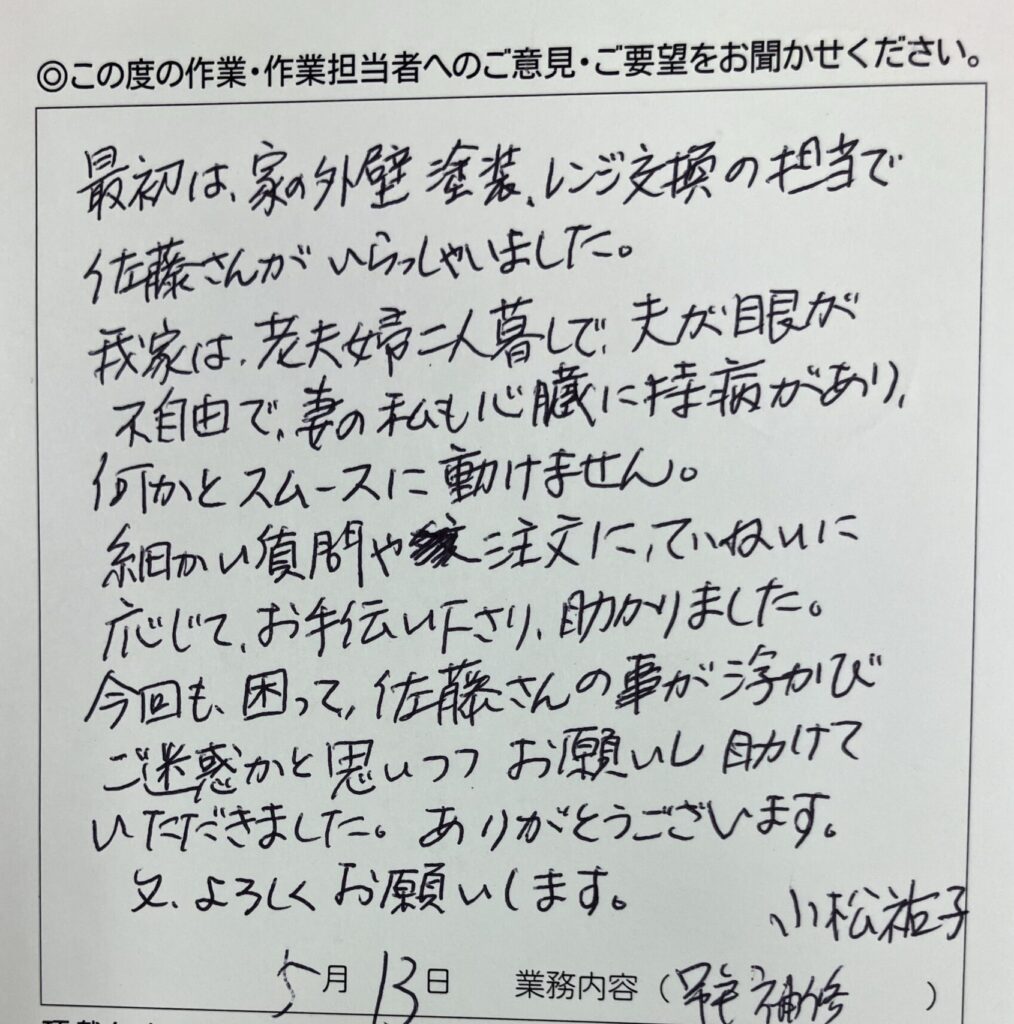 ◎この度の作業・作業担当者へのご意見・ご要望をお聞かせください。
最初は、家の外壁塗装、レンジ交換の担当で
佐藤さんがいらっしゃいました。
我家は、老夫婦二人暮しで、夫が眼が
不自由で、妻の私も心臓に持病があり、
何かとスムースに動けません。
細かい質問や注文に、ていねいに
応じて、お手伝い下さり、助かりました。
今回も、困って、佐藤さんの事が浮かび
ご迷惑かと思いつつ お願いし 助けて
いただきました。ありがとうございます。
又、よろしくお願いします。
小松祐子
5月13日 業務内容（補修）